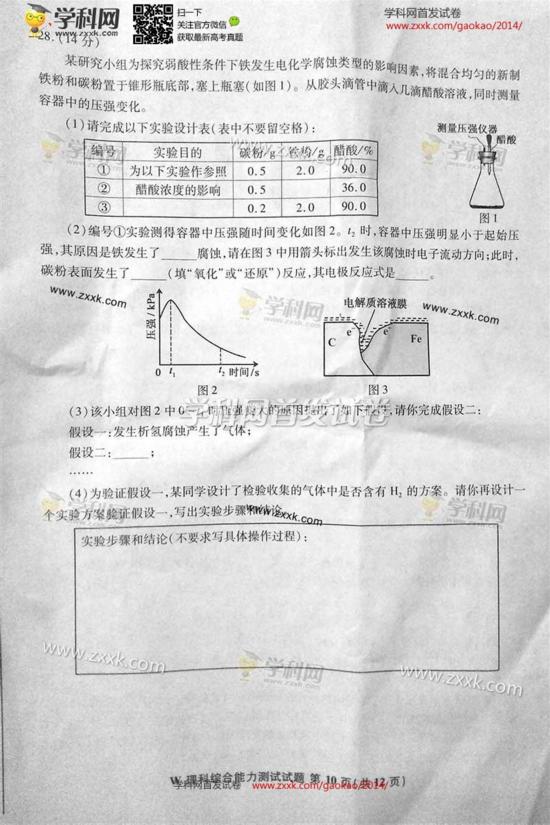 学科网
扫一下
关注官方微信
获取最新高考真题
学科网首发试卷
www.zxxk.com/gaokao/2014/
28.(14分)
某研究小组为探究弱酸性条件下铁发生电化学腐蚀类型的影响因素,将混合均匀的新制
铁粉和碳粉置于锥形瓶底部,塞上瓶塞(如图1)。从胶头滴管中滴入几滴醋酸溶液,同时测量
容器中的压强变化。
(1)请完成以下实验设计表(表中不要留空格):
编号 实验目的 碳粉/g 铁粉/g 醋酸/%
① 为以下实验作参照 0.5 2.0 90.0
② 醋酸浓度的影响 0.5 36.0
③ 0.2 2.0 90.0
测量压强仪器
醋酸
图1
(2)编号①实验测得容器中压强随时间变化如图2。t2时,容器中压强明显小于起始压
强,其原因是铁发生了______腐蚀,请在图3中用箭头标出发生该腐蚀时电子流动方向;此时,
碳粉表面发生了______(填“氧化”或“还原”)反应,其电极反应式是______。
www.zxxk.com
学科网
www.zxxk.com
压强/kPa
0 t1 t2 时间/s
图2
电解质溶液膜
C e- e- Fe
图3
学科网首发试卷
(3)该小组对图2中0
如下假设,请你完成假设二:
假设一:发生析氢腐蚀产生了气体;
假设二:______;
……
(4)为验证假设一,某同学设计了检验收集的气体中是否含有H2的方案。请你再设计一
个实验方案验证假设一,写出实验步骤和结论。
www.zxxk.com
实验步骤和结论(不要求写具体操作过程):
www.zxxk.com
学科网
www.zxxk.com
www.zxxk.com
W 理科综合能力测试试题 第 10 页(共 12 页)
学科网首发试卷
www.zxxk.com/gaokao/2014/